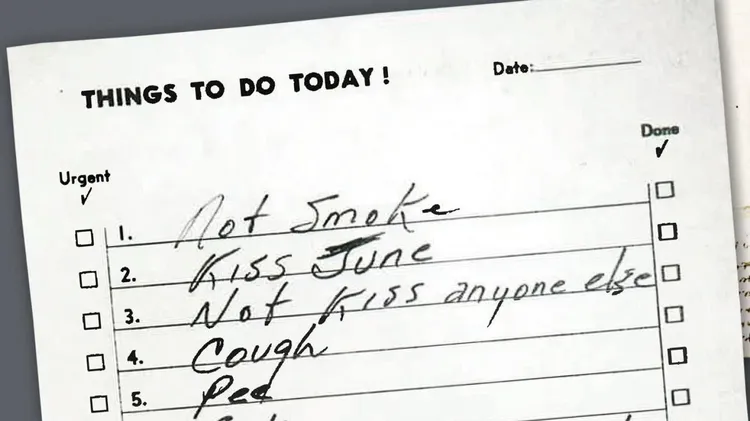 THINGS TO DO TODAY! Date:
Urgent Done
✓ ✓
1. Not Smoke
2. Kiss June
3. Not Kiss anyone else
4. Cough
5. Pee